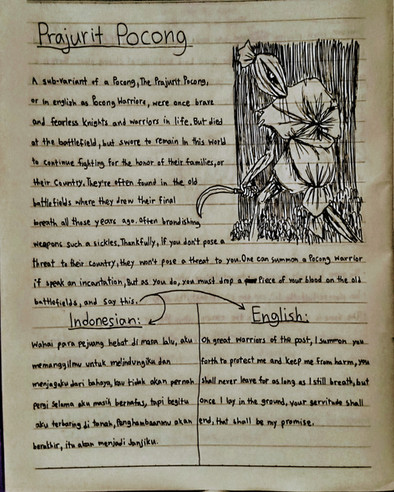 Prajurit Pocong
A sub-variant of a Pocong, The Prajurit Pocong,
or in english as Pocong Warriors, were once brave
and fearless knights and warriors in life. But died
at the battlefield, but swore to remain in this world
to continue fighting for the honor of their families, or
their Country. They're often found in the old
battlefields where they drew their final
breath all those years ago. Often brandishing
weapons such a sickles. Thankfully, If you don't pose a
threat to their Country, they won't pose a threat to you. One can summon a Pocong Warrior
if speak an incantation, But as you do, you must drop a Piece of your blood on the old
battlefields, and say this.
Indonesian:
Wahai para pejuang hebat di masa lalu, aku
memanggilmu untuk melindungiku dan
menjagaku dari bahaya, kau tidak akan pernah
pergi selama aku masih bernafas, tapi begitu
aku terbaring di tanah, Penghambaanmu akan
berakhir, itu akan menjadi Janjiku.
English:
Oh great warriors of the past, I summon you
forth to protect me and keep me from harm, you
shall never leave for as long as I still breath, but
once I lay in the ground, your servitude shall
end, that shall be my promise.